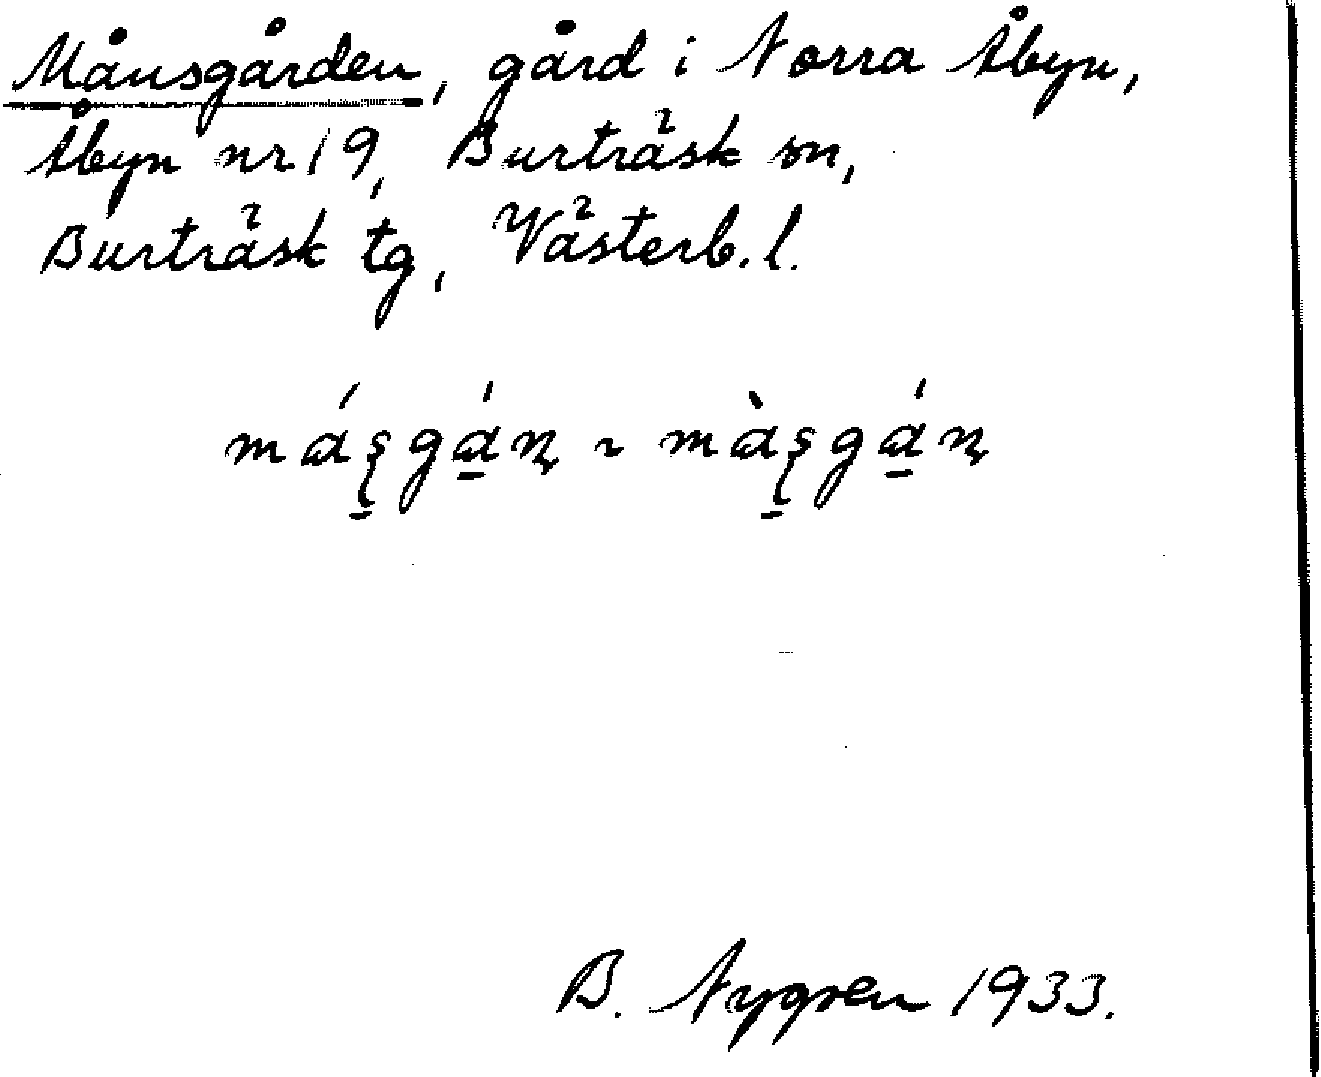 Månsgården, gård i Norra Åbyn,
Åbyn nr 19, Burträsk sn,
Burträsk tg, Västerb. l.
máʂgá̱ɳ ~ màʂgá̱ɳ
B. Nygren 1933.